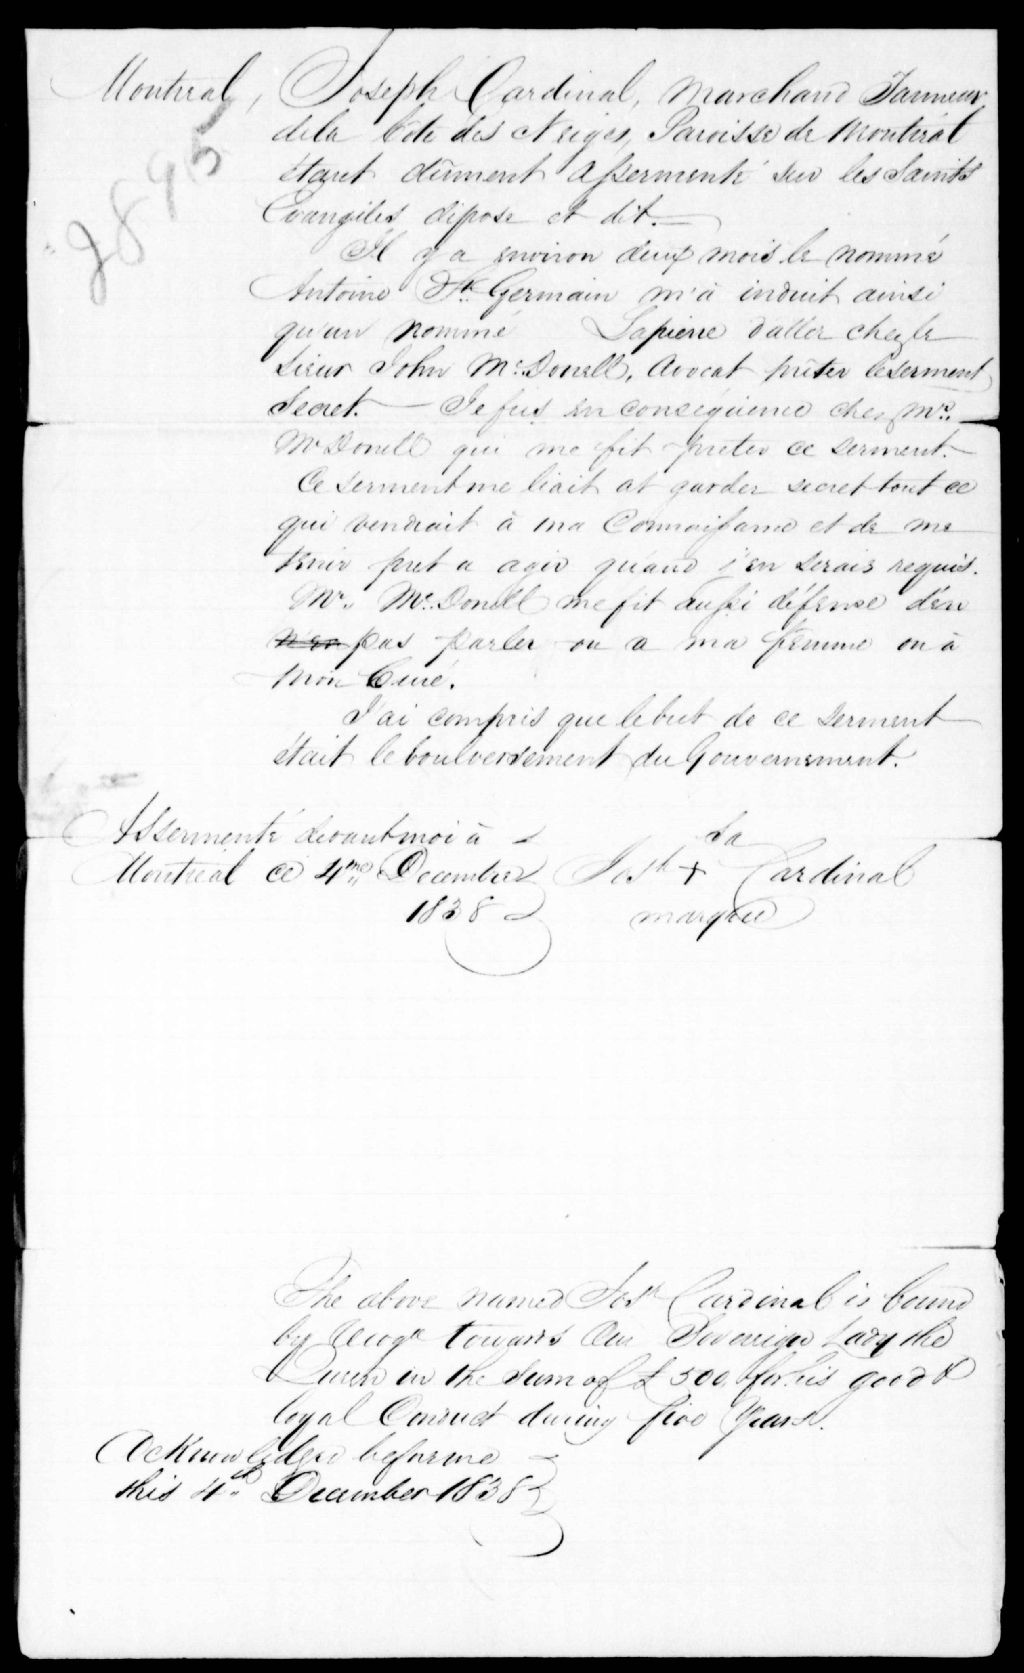 Montréal, Joseph Cardinal, Marchand Tanneur
de la Côte des Neiges, Paroisse de Montréal
étant dûment assermenté sur les Saints
Evangiles dépose et dit.—
2895
Il y a environ deux mois le nommé
Antoine St. Germain m'à induit ainsi
qu'un nommé Lapierre d'aller chez le
Sieur John McDonell, Avocat prêter le serment
Secret. — Je fus en conséquence chez Mr.
McDonell qui me fit prêter ce serment.—
Ce serment me liait at garder secret tout ce
qui vendrait à ma Connaissance et de me
tenir pret a agir quand j'en serais requis.
Mr. McDonell me fit aussi défense d'en
n'en pas parler ou a ma femme ou à
mon Curé.
J'ai compris que le but de ce serment
était le boulversement du Gouvernement.
Assermenté devant moi à
Montréal ce 4me Decembre
1838
sa
Josh + Cardinal
marque
The above named Josh Cardinal is bound
by Recogce towards Our Sovereign Lady the
Queen in the Sum of £500 for his good &
loyal Conduct during five Years.
Acknowledged before me
this 4th December 1838